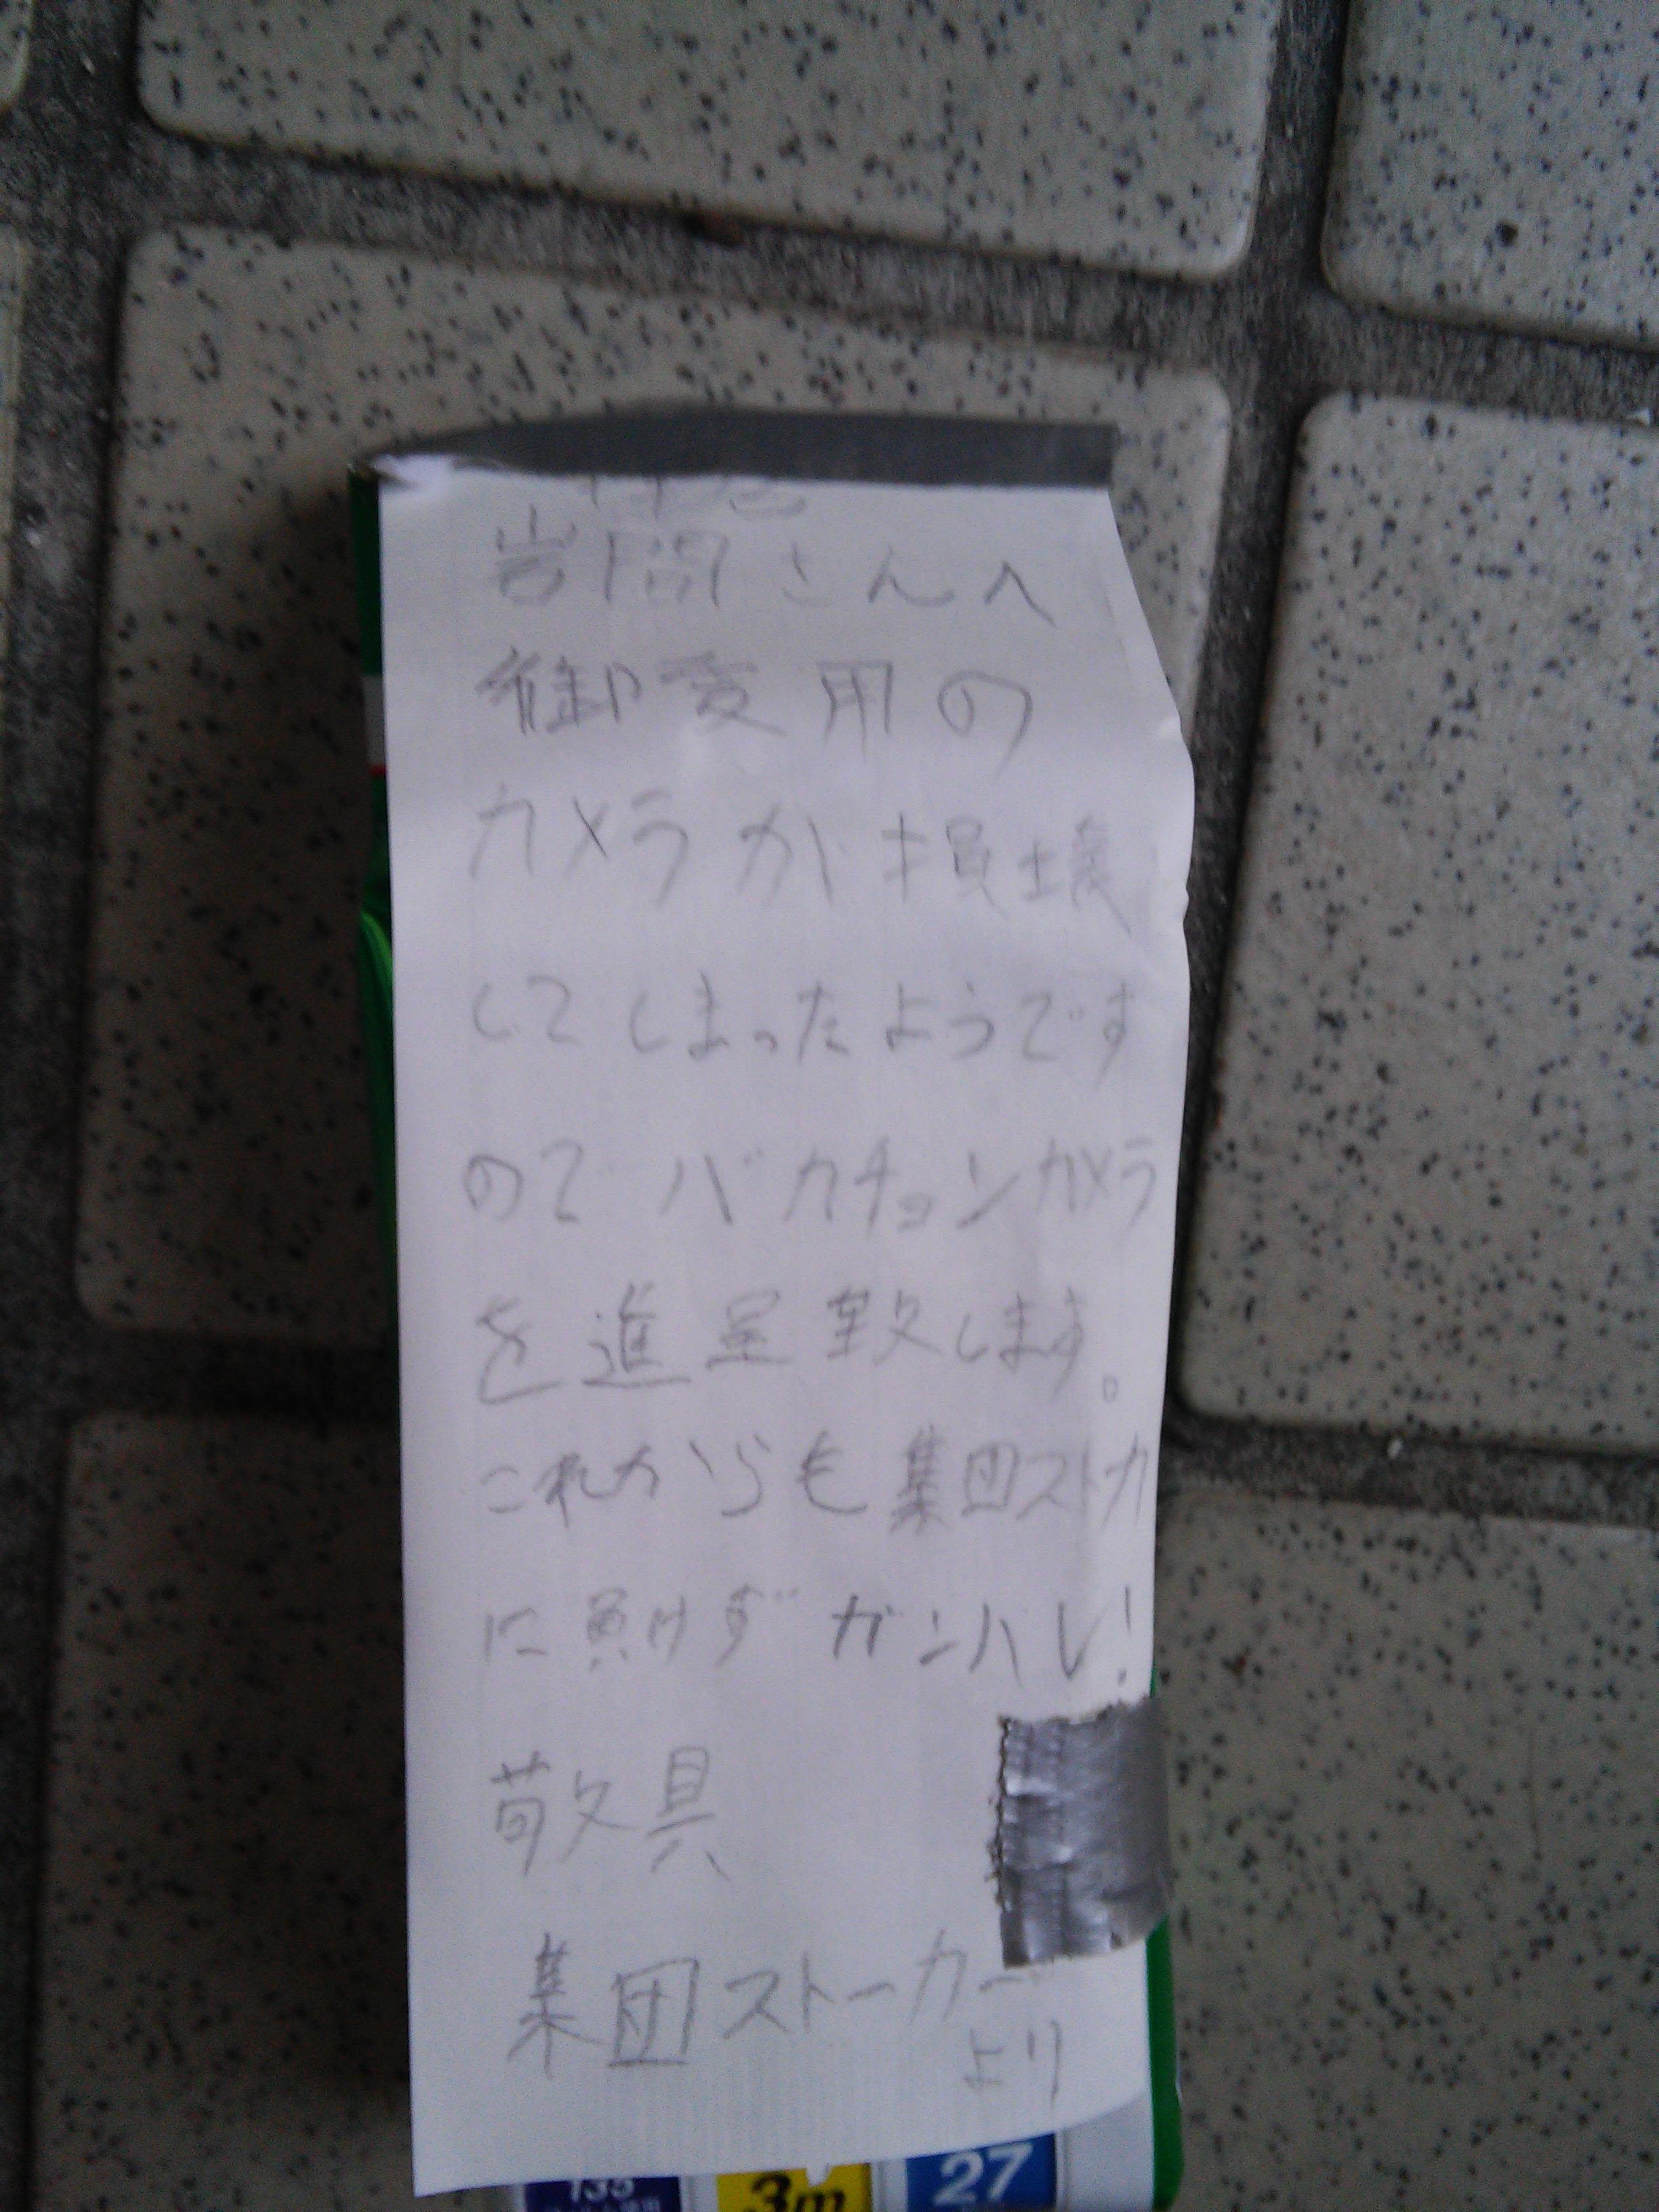 岩間さんへ
御愛用の
カメラが損壊
してしまったようです
のでバカチョンカメラ
を進呈致します。
これからも集団ストカ
に負けずガンバレ!
敬具
集団ストーカー
より
135
3m
27